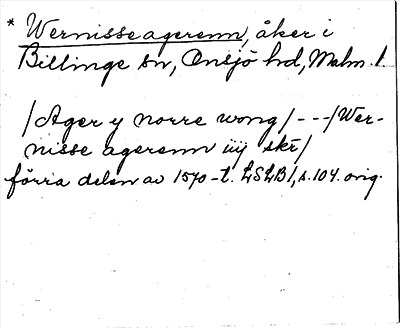 * Wernisse agerenn, åker i
Billinge sn, Onsjö hd, Malm. l.
/Ager y norre wong/ - - - /Wer-
nisse agerenn iij skr/
förra delen av 1570-t. LSLB 1, s. 104. orig.